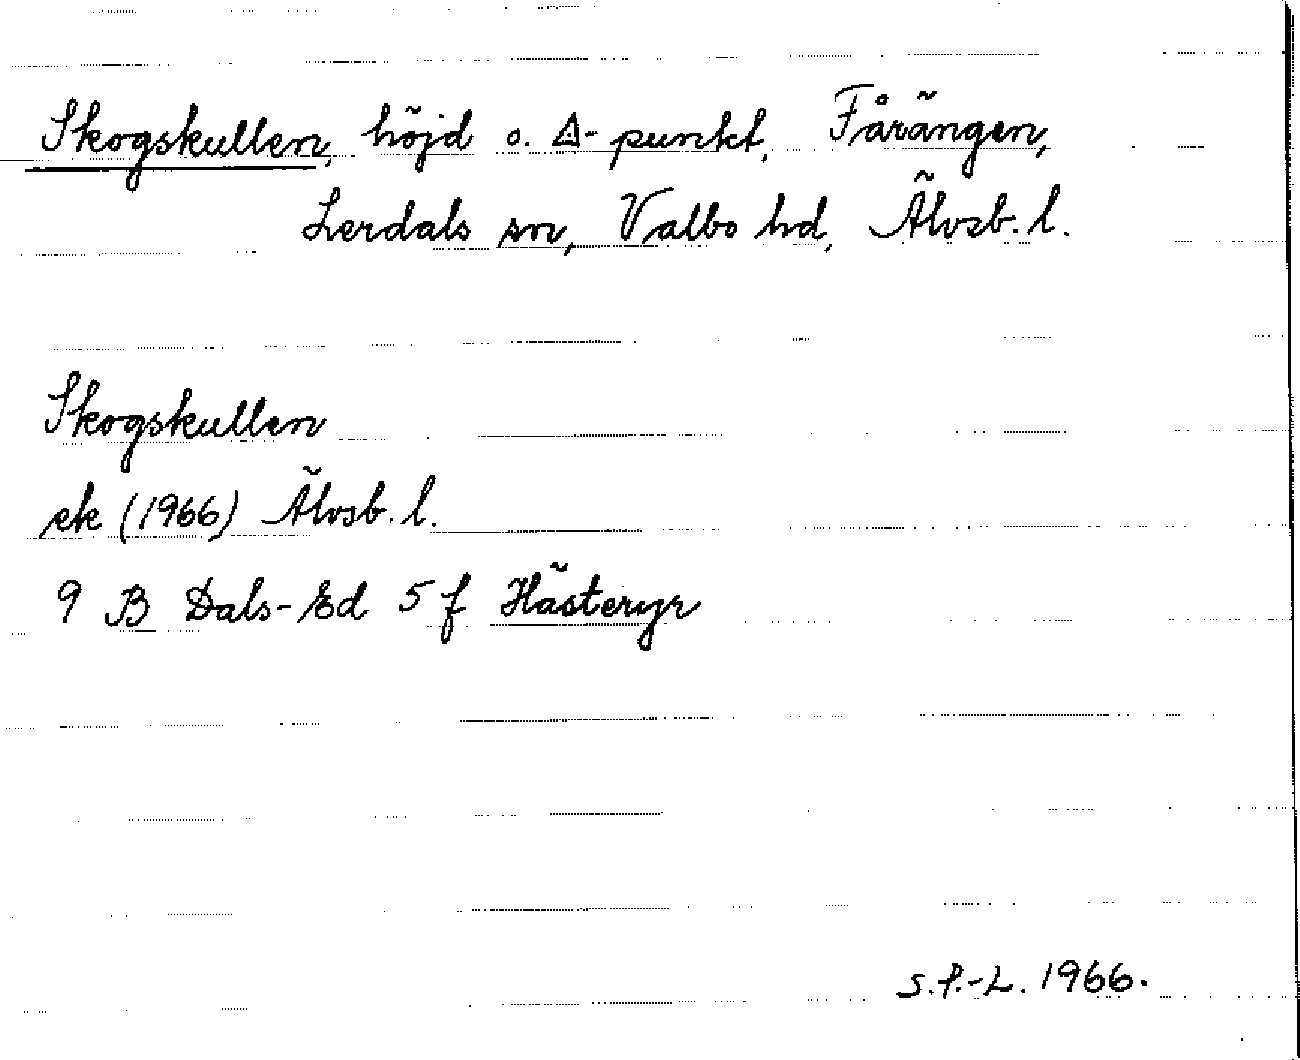 Skogskullen, höjd o. △-punkt, Fårängen,
Lerdals sn, Valbo hd, Älvsb. l.
Skogskullen
ek (1966) Älvsb. l.
9 B Dals-Ed 5 f Hästeryr
S.P.-L. 1966.